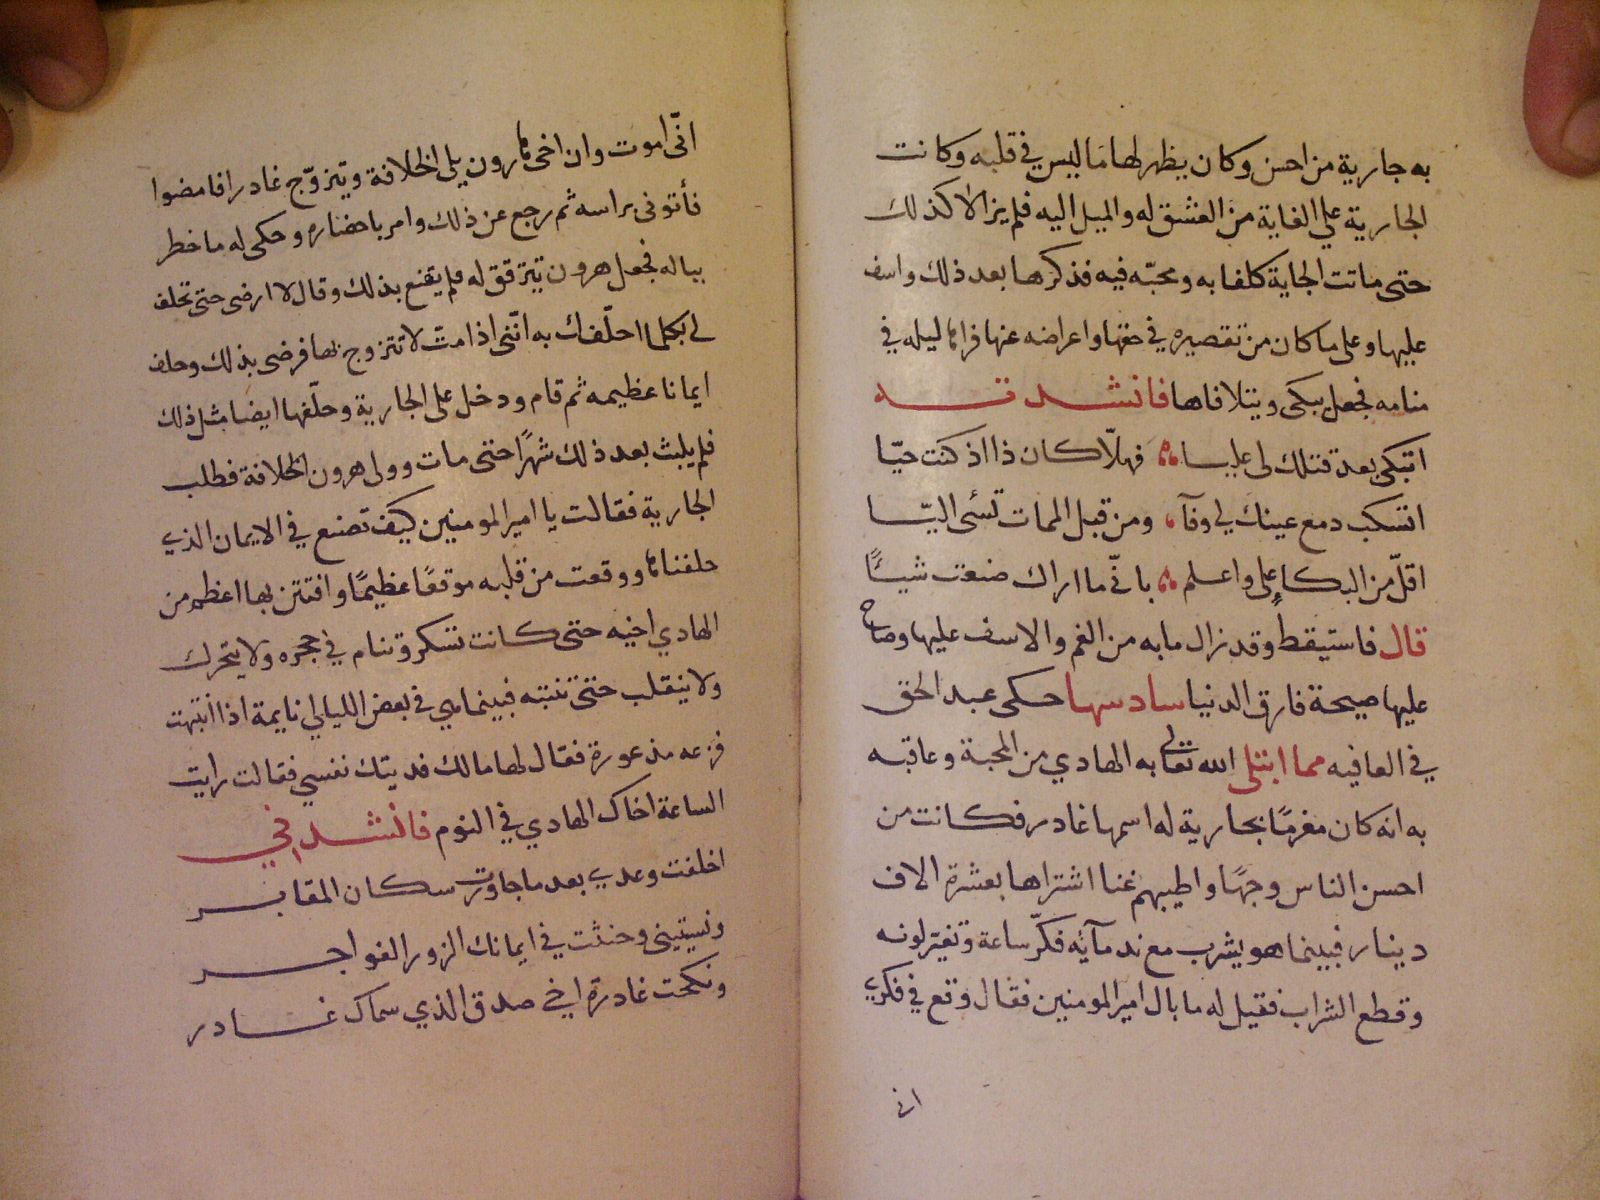 به جارية من احسن وكان يظهر لها ما ليس في قلبه وكانت
الجارية على الغاية من العشق له والميل اليه فلم يزالا كذلك
حتى ماتت الجاية كلفا به ومحبّه فيه فذكرها بعد ذلك واسف
عليها وعلى ما كان من تقصيره في حقها واعراضه عنها فراها ليله في
منامه فجعل يبكى ويتلافاها فانشدته
اتبكى بعد قتلك لى عليا فهلّا كان ذا اذ كنت حيّا
اتسكب دمع عينك لي وفآ ومن قبل الممات تسئى اليّا
اقلّ من البكاء على واعلم بانّى ما اراك صنعت شيئًا
قال فاستيقظ وقد زال ما به من الغم والاسف عليها وصاح
عليها صيحة فارق الدنيا سادسها حكى عبد الحق
في العافيه مما ابتلى الله تعالى به الهادي من المحبة وعاقبه
به انه كان مغرمًا بجارية له اسمها غادر فكانت من
احسن الناس وجهًا واطيبهم غنا اشتراها بعشرة الاف
دينار فبينما هو يشرب مع ندمآئه فكّر ساعة وتغيّر لونه
وقطع الشراب فقيل له ما بال امير المومنين فقال وقع في فكري
انى
انّى اموت وان اخى هارون يلى الخلافة ويتزوّج غادر افامضوا
فأتونى براسه ثم رجع عن ذلك وامر باحضاره وحكى له ما خطر
بباله فجعل هرون يترقق له فلم يقنع بذلك وقال لا ارضى حتى تحلف
لى بكلما احلّفك به انّنى اذا متّ لا تتزوج بها فرضى بذلك وحلف
ايمانا عظيمه ثم قام ودخل على الجارية وحلّفها ايضا مثل ذلك
فلم يلبث بعد ذلك شهرًا حتى مات وولى هرون الخلافة فطلب
الجارية فقالت يا امير المومنين كيف تصنع في الايمان الذي
حلفناها ووقعت من قلبه موقعًا عظيمًا وافتتن بها اعظم من
الهادي اخيه حتى كانت تسكر وتنام في حجره ولا يتحرك
ولا ينقلب حتى تنتبه فبينما هي في بعض الليالي نايمة اذا انتبهت
فزعه مذعورة فقال لها مالك فديتك نفسي فقالت رايت
الساعة اخاك الهادي في النوم فانشدني
اخلفت وعدي بعد ما جاورت سكان المقابر
ونسيتينى وحنثت في ايمانك الزور الفواجر
ونكحت غادرة اخي صدق الذي سماك غادر